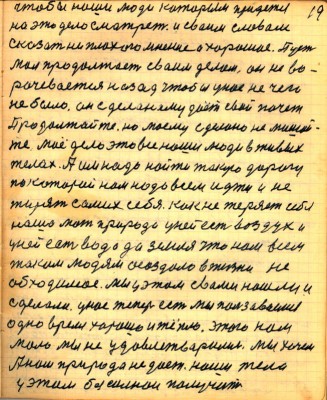 19
чтобы наши люди которым придется
на это дело смотреть. и своим словам
сказат не плохого мнение а хорошое. Пуст
мол продолжает своим делом, он не во-
рачевается назад чтобы у нас не чего
не было, он сделан ему даёт свой почет
Продолжайте, но моему сделано не мешай-
те. моё дело это вы наши люди в живых
телах. А нам надо найти такую дорогу
по которой нам надо всем идти и не
терят самих себя. как не теряет себя
наша мат природа у ней ест воздух и
у ней ест вода да земля это нам всем
таким людям создало в жизни не
обходимое. мы у этом сваими нашли и
сделали, у нас тепер ест мы пользаваис
одно время хорошо и тёпло. этого нам
мало мы не удовлетварилис. мы хочем
А нам природа не дает. наши тела
у этом болезни получит